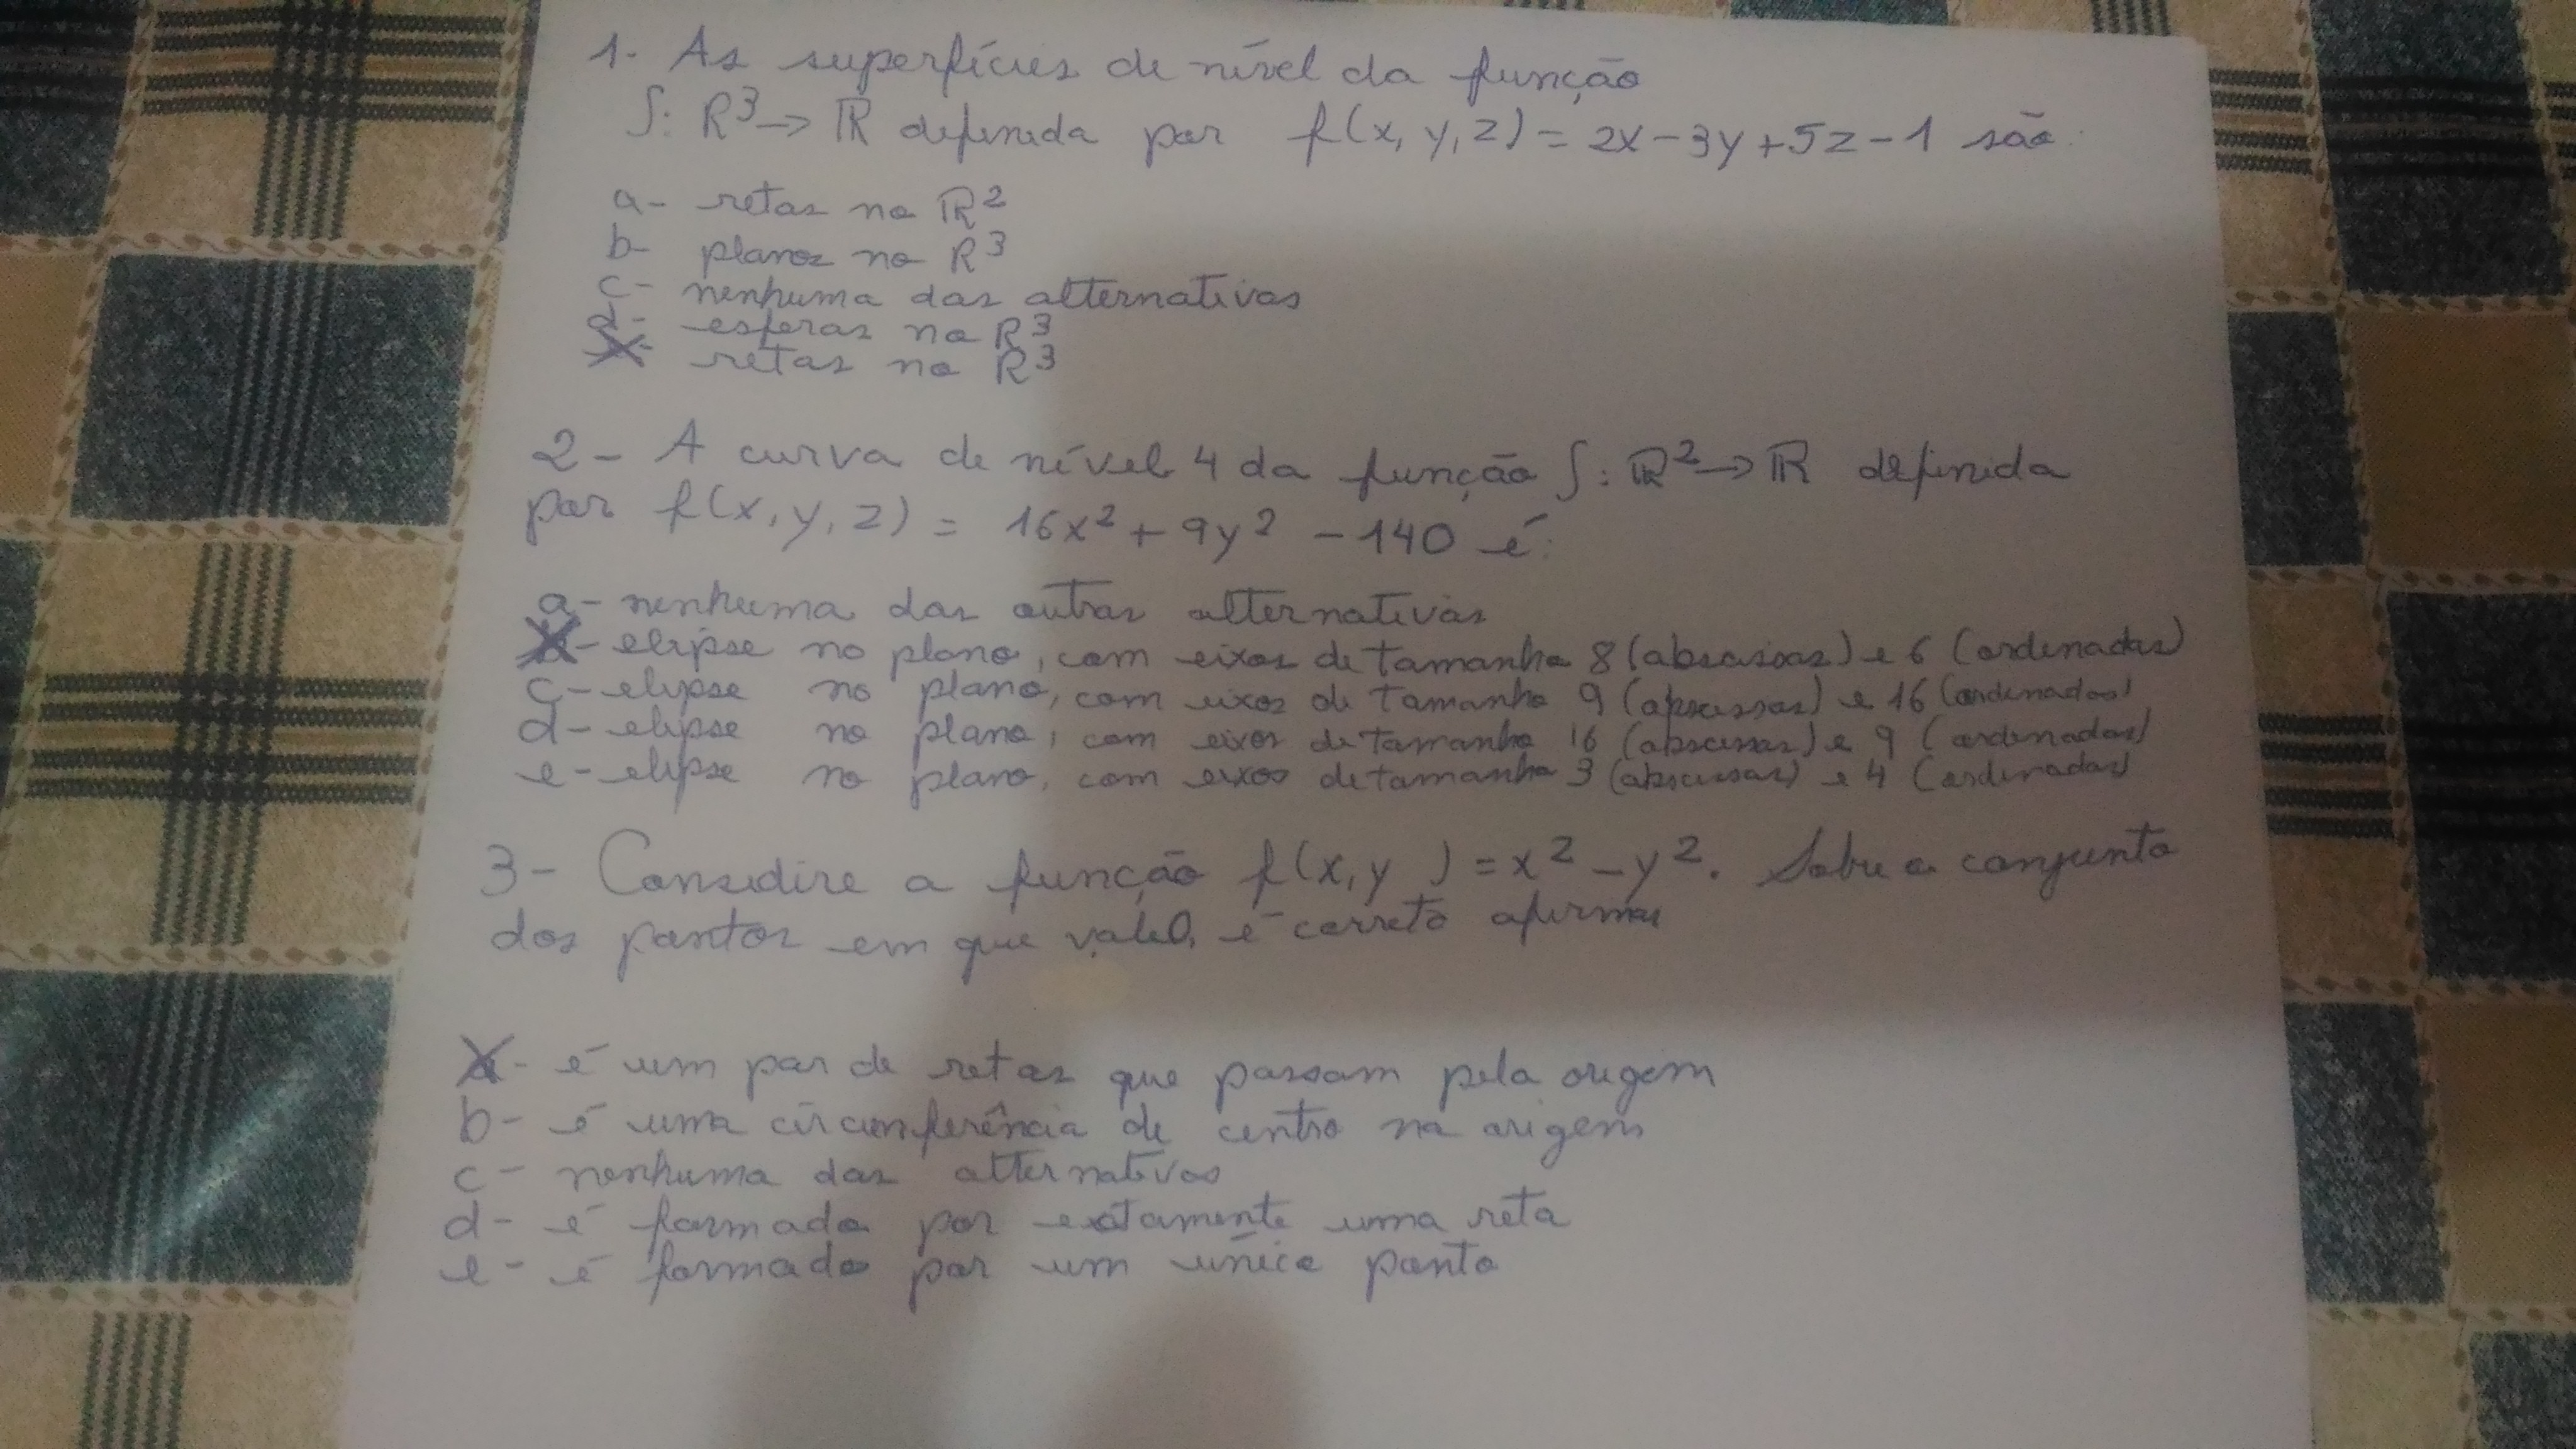 1- As superfícies de nível da função
∫: R³ → ℝ definida por f(x, y, z) = 2x - 3y + 5z - 1 são:
a- retas no ℝ²
b- planos no R³
c- nenhuma das alternativas
d- esferas no R³
retas no R³
2- A curva de nível 4 da função ∫: ℝ² → ℝ definida
por f(x, y, z) = 16x² + 9y² - 140 é:
a- nenhuma das outras alternativas
b- elipse no plano, com eixos de tamanho 8 (abscissas) e 6 (ordenadas)
c- elipse no plano, com eixos de tamanho 9 (abscissas) e 16 (ordenadas)
d- elipse no plano, com eixos de tamanho 16 (abscissas) e 9 (ordenadas)
e- elipse no plano, com eixos de tamanho 3 (abscissas) e 4 (ordenadas)
3- Considere a função f(x, y ) = x² - y². Sobre o conjunto
dos pontos em que vale 0, é correto afirmar
a- é um par de retas que passam pela origem
b- é uma circunferência de centro na origem
c- nenhuma das alternativas
d- é formado por exatamente uma reta
e- é formado por um único ponto